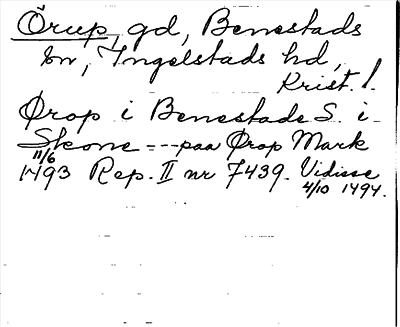 Örup, gd, Benestads
sn, Ingelstads hd,
Krist. l.
Ørop i Benestade S. i
Skone --- paa Ørop Mark
11/6 1493 Rep. II nr 7439. Vidisse
4/10 1494.